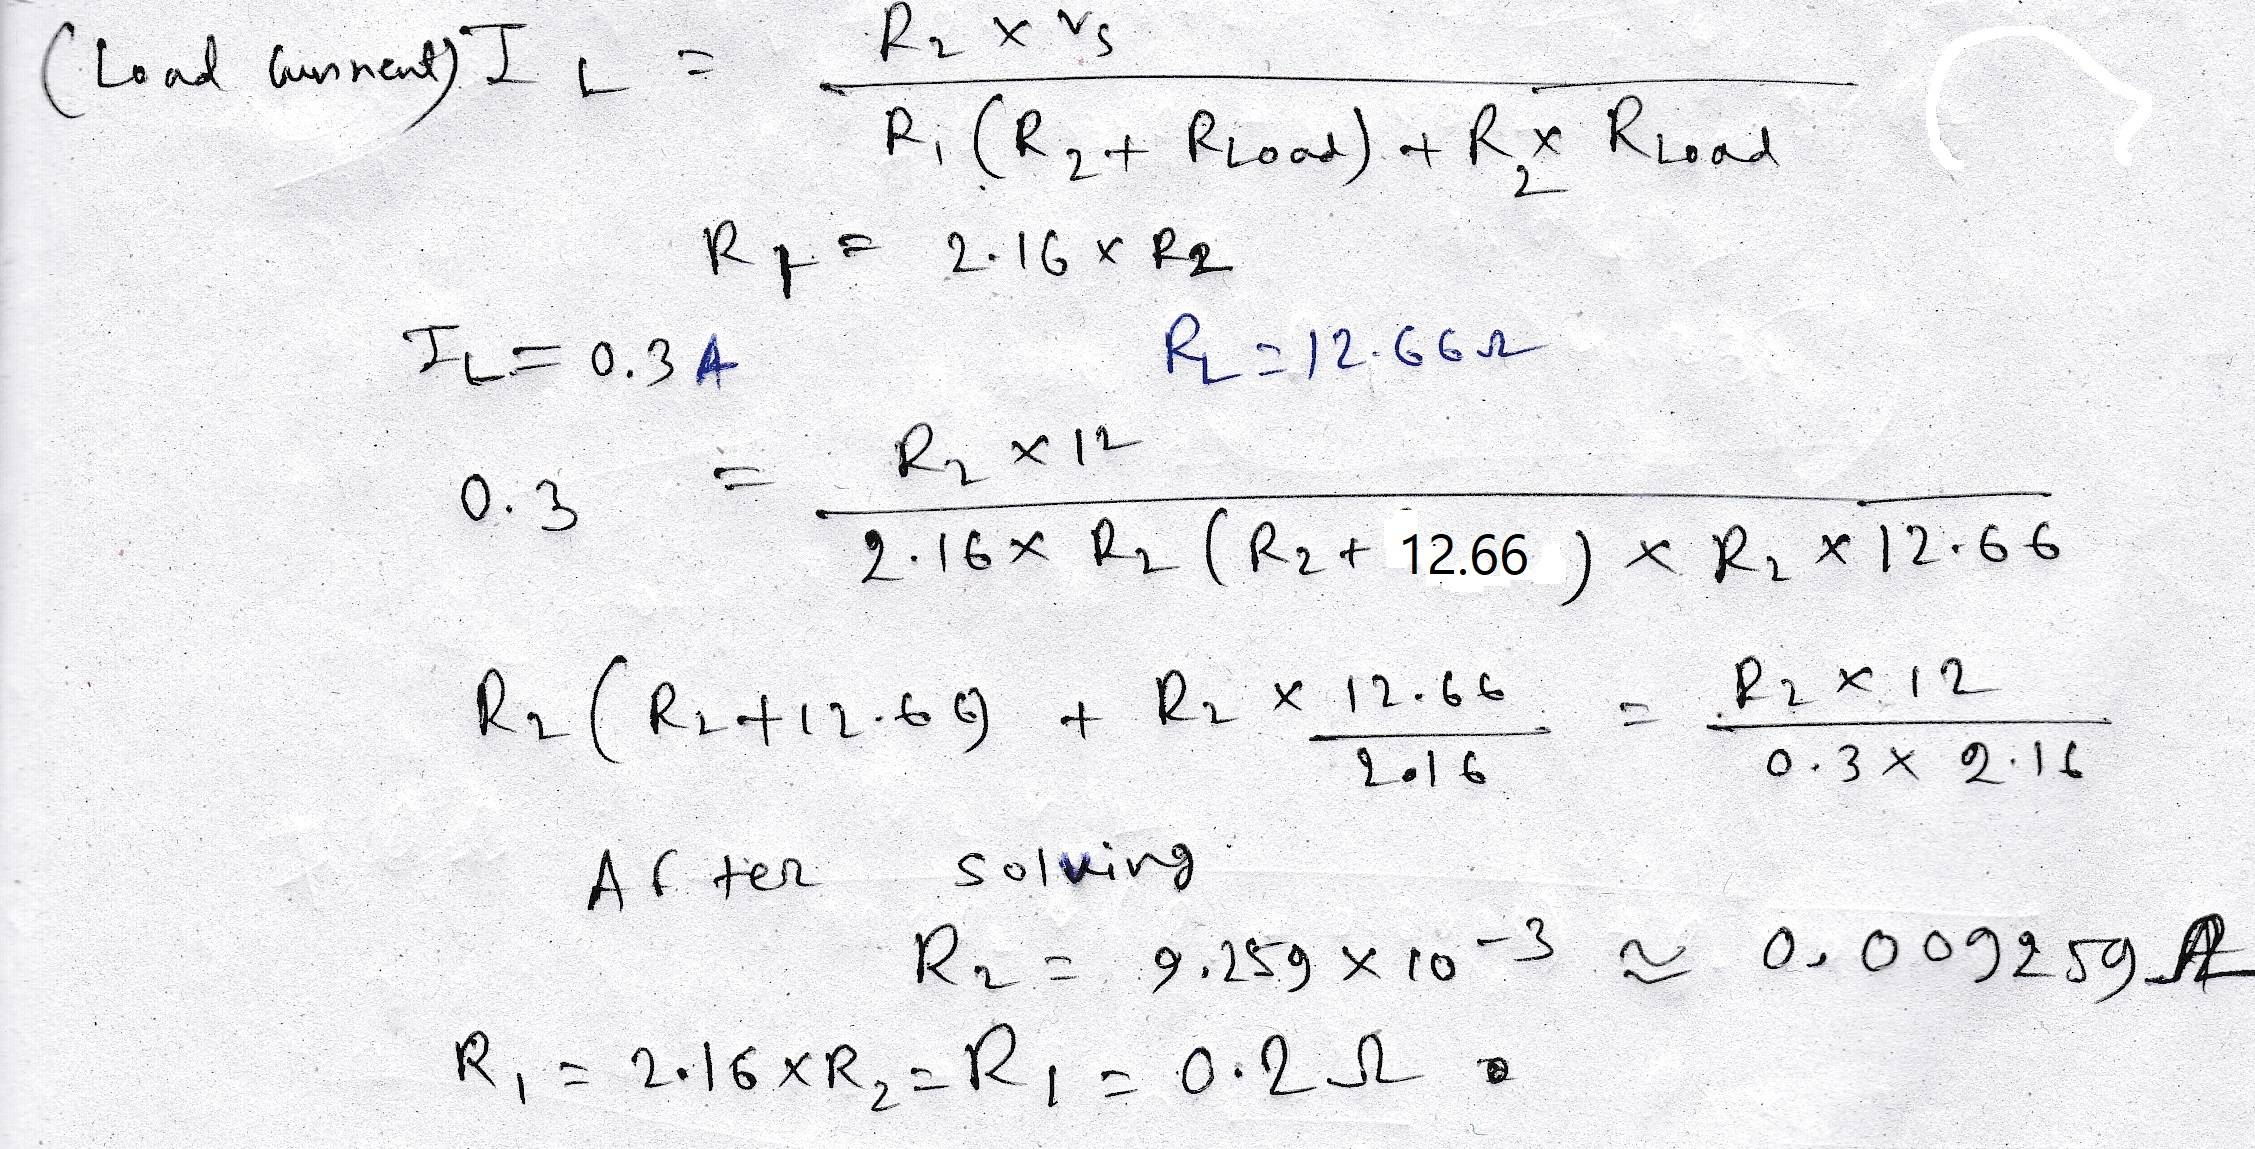 (Load current) I L = R2 x vs / R1 (R2 + RLoad) + R2 x RLoad
R1 = 2.16 x R2
IL = 0.3 A RL = 12.66Ω
0.3 = R2 x 12 / 2.16 x R2 (R2 + 12.66) x R2 x 12.66
R2 (R2 + 12.66) + R2 x 12.66 / 2.16 = R2 x 12 / 0.3 x 2.16
After solving
R2 = 9.259 x 10^-3 ≃ 0.009259 Ω
R1 = 2.16 x R2 = R1 = 0.2 Ω